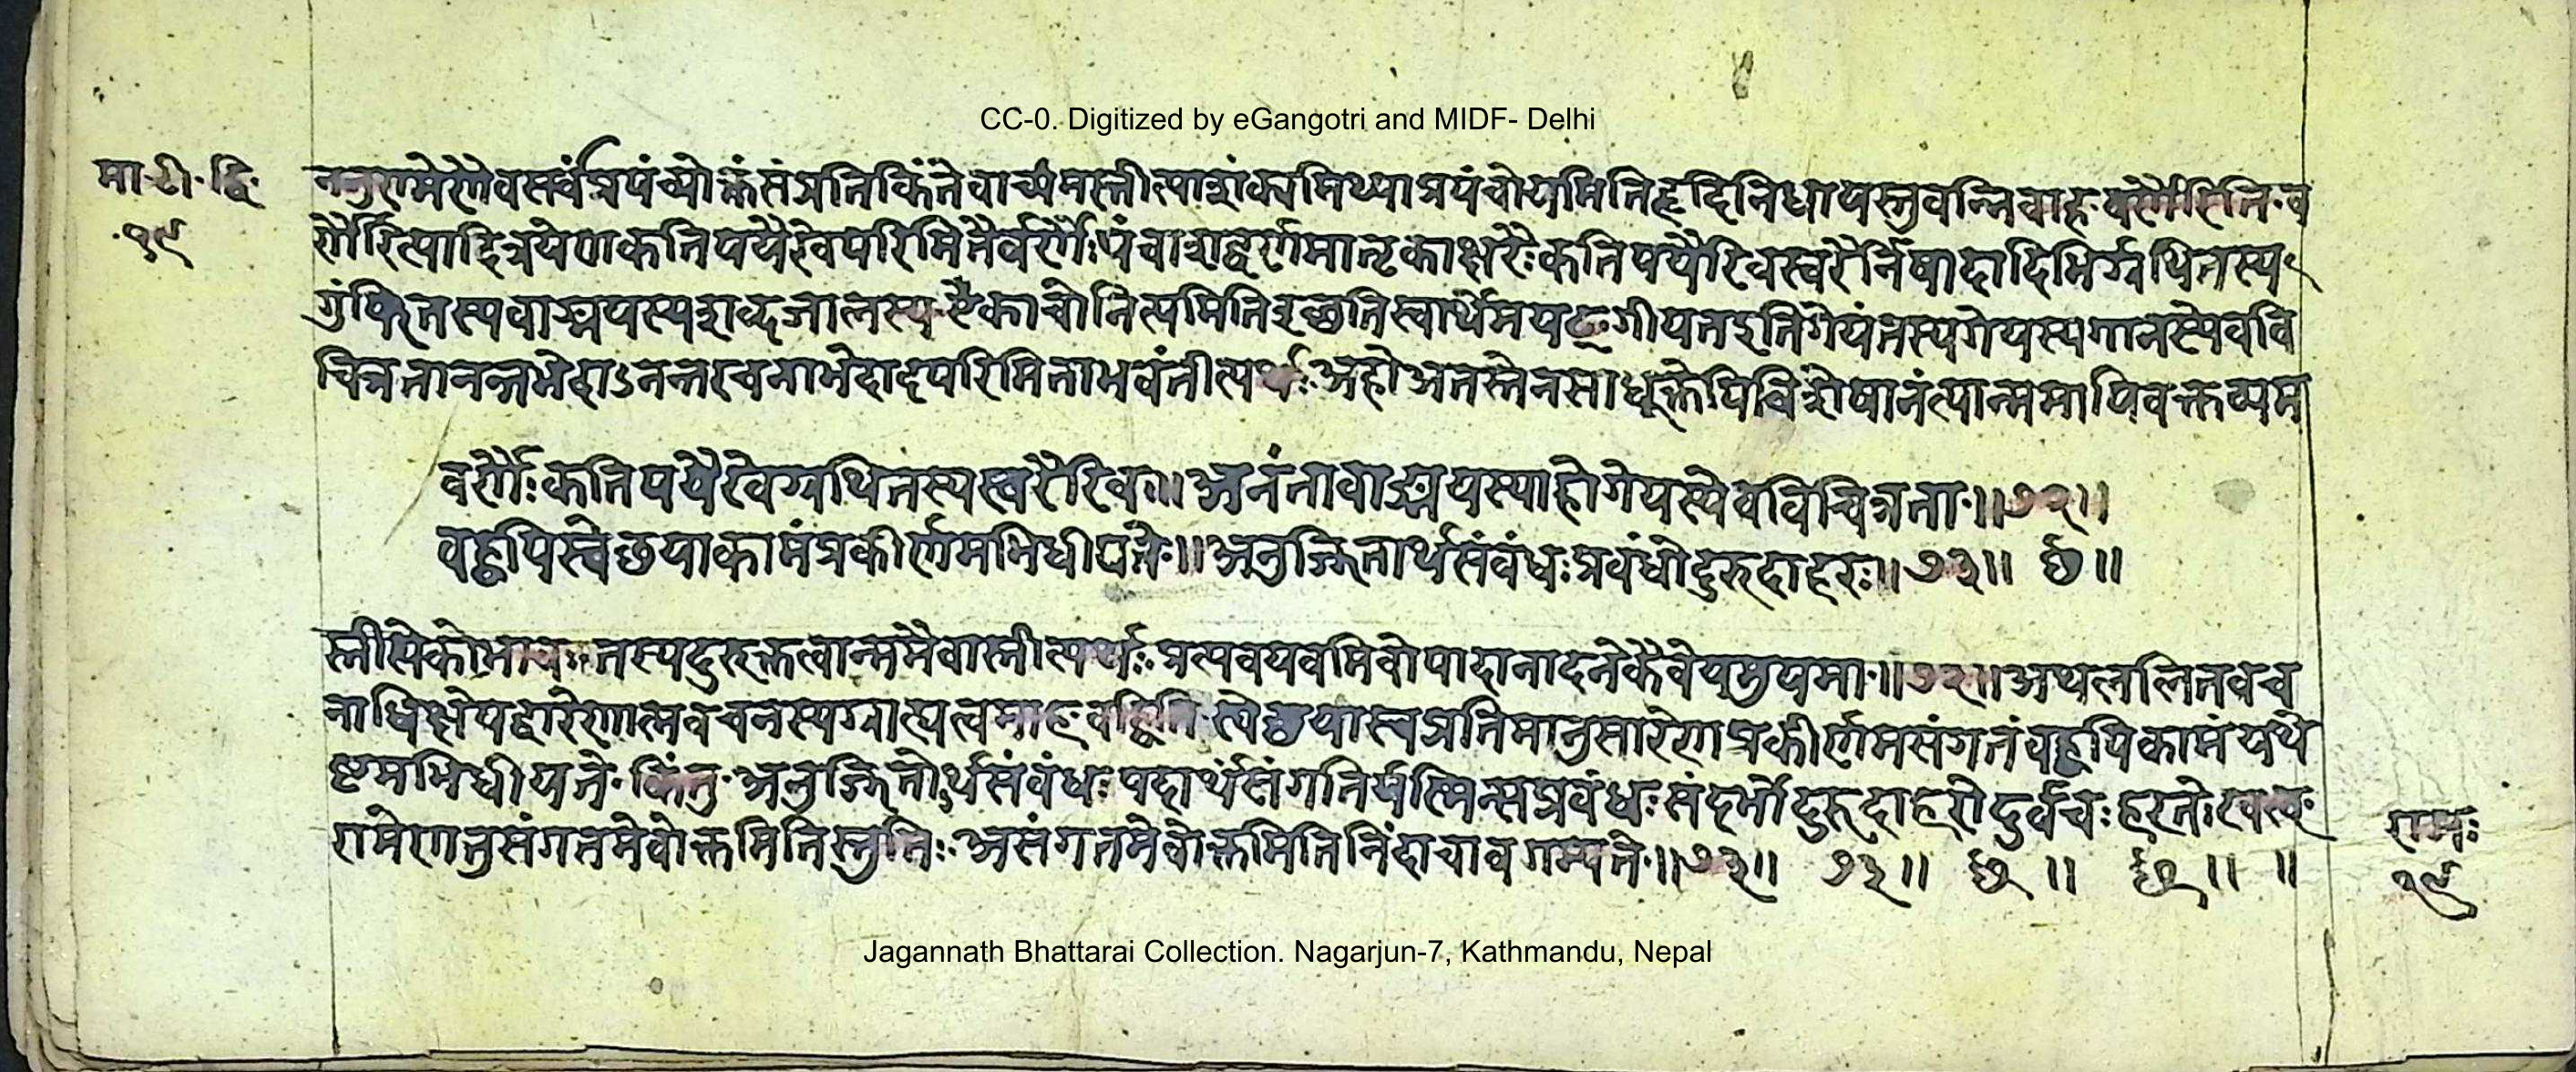 CC-0. Digitized by eGangotri and MIDF- Delhi
मा. टी. द्वि.
१९
ननुरामेणैवसर्वंप्रपंच्योक्तंसंप्रतिकिंतेवाच्यमस्तीत्याशंक्यमिथ्याप्रपंचोयमितिहृदिनिधायस्तुवन्निवाह वर्णैरिति व
र्णैरित्यादित्रयेण कतिपयैरेवपरिमितैर्वर्णैः पंचाशद्वर्णमातृकाक्षरैः कतिपयैरेवस्वरैर्निषादादिभिर्ग्रथितस्य
गुंफितस्यवाङ्मयस्यशब्दजालस्य गीयतइतिगेयंतस्यगेयस्यगानस्येववि
चित्रतानन्तभेदाऽनन्तरचनाभेदादपरिमिताभवंतीत्यर्थः अहोअतस्तेनसाधूक्तेपिविशेषानंत्यान्ममापिवक्तव्यम
वर्णैः कतिपयैरेवग्रथितस्यस्वरैरिव ॥ अनंतावाङ्मयस्याहोगेयस्येवविचित्रता ॥ ७२ ॥
बह्वपिस्वेछयाकामंप्रकीर्णमभिधीयते ॥ अनुज्झितार्थसंबंधः प्रबंधोदुरुदाहरः ॥ ७३ ॥ छ ॥
स्तीत्येकोभावः तस्यदुरुक्तत्वान्ममैवास्तीत्यर्थः प्रत्यवयवमिवोपादानादनेकैवेयमुपमा ॥ ७२ ॥ अथललितवच
नाधिक्षेपद्वारेणात्मवचनस्यग्राह्यत्वमाह बह्विति स्वेछयास्वप्रतिभानुसारेणप्रकीर्णमसंगतंबह्वपिकामंयथे
ष्टमभिधीयते किंतु अनुज्झितोर्थसंबंधः पदार्थसंगतिर्यस्मिन्सप्रबंधः संदर्भोदुरुदाहरोदुर्वचः हरतेः खल्
रामेणतुसंगतमेवोक्तमितिस्तुतिः असंगतमेवोक्तमितिनिंदाचावगम्यते ॥ ७३ ॥ ७३ ॥ छ ॥ छ ॥ ॥
रामः
१९
Jagannath Bhattarai Collection. Nagarjun-7, Kathmandu, Nepal